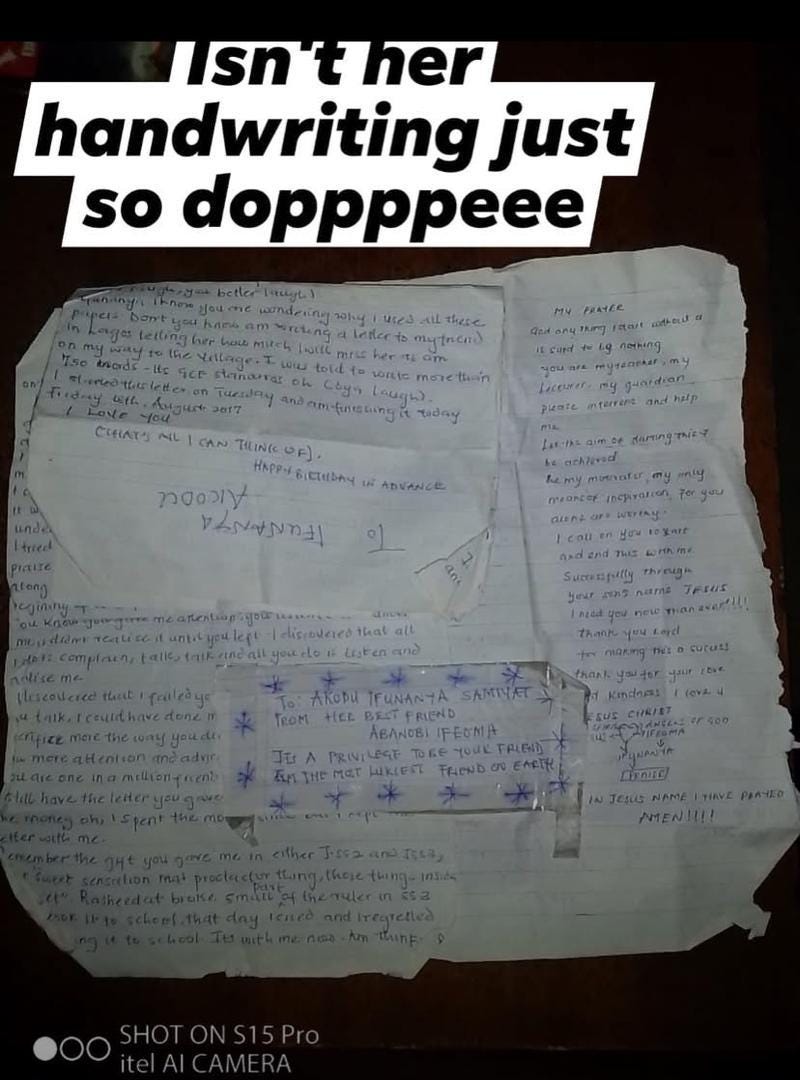 Isn't her
handwriting just
so doppppeee
laugh, you better laugh)
I know you are wondering why I used all these
papers. Don't you know am writing a letter to my friend
in Lagos telling her how much I will miss her as am
on my way to the village. I was told to write more than
750 words - its GCE standards oh (bya laugh).
I started this letter on Tuesday and am finishing it today
Friday August 2017
I Love You
(THAT'S ALL I CAN THINK OF).
HAPPY BIRTHDAY IN ADVANCE
To
IFUNANYA
AKODU
on
m
it w
unde
I tried
praise
Along
begining
You know you gave me attention, you
me, i didnt realise it until you left. I discovered that all
I do is complain, talk, talk and all you do is listen and
advise me
I discovered that I failed yo
talk, I could have done m
sacrifice more the way you du
more attention and advi
are one in a million frien
still have the letter you gave
the money oh, I spent the mo
letter with me.
remember the gift you gave me in either Jss2 and Jss3,
"sweet sensation mat proctactor thing, those thing inside
set". Rasheedat broke small part of the ruler in ss2
took it to school, that day I cried and I regretted
ing it to school. Its with me now. Am think
To: AKODU IFUNANYA SAMIYAT
FROM HER BEST FRIEND
ABANOBI IFEOMA
ITS A PRIVILEGE TO BE YOUR FRIEND
AM THE MOT LUKIEST FRIEND ON EARTH
MY PRAYER
God any thing I start without u
is sure to by nothing
you are my teacher, my
lecturer, my guardian
please intervene and help
me
Let the aim of starting this
be achieved
Be my motivator, my only
means of inspiration, for you
alone are worthy.
I call on you to start
and end this with me
Successfully through
your son's name JESUS
I need you now than ever!!!!
Thank you Lord
for making this a success
thank you for your love
kindness I love u
JESUS CHRIST
ANGELS OF GOD
IFEOMA
IFUNANYA
PRAISE
IN JESUS NAME I HAVE PRAYED
AMEN!!!!
SHOT ON S15 Pro
itel AI CAMERA